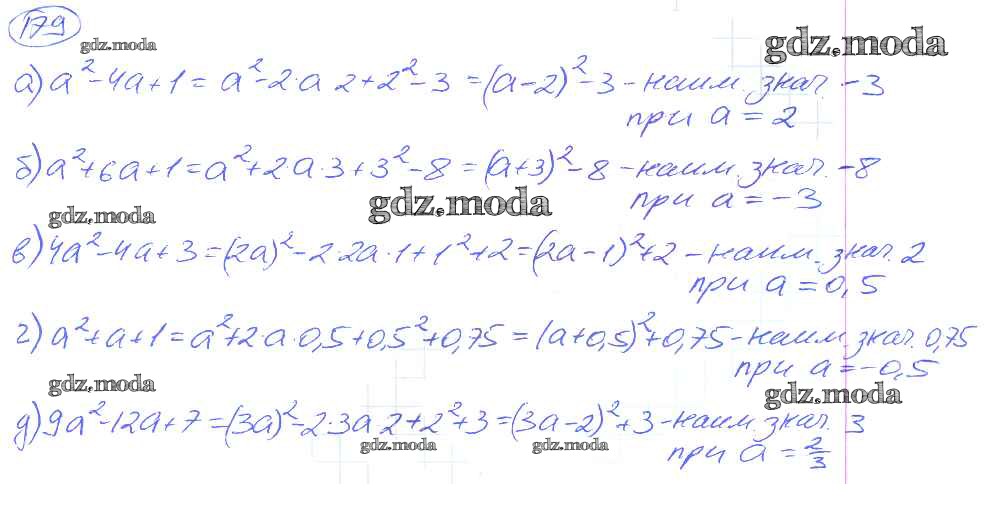 179
gdz.moda
gdz.moda
а) a² - 4a + 1 = a² - 2·a 2 + 2² - 3 = (a - 2)² - 3 - наим. знач. - 3
при a = 2
б) a² + 6a + 1 = a² + 2a·3 + 3² - 8 = (a + 3)² - 8 - наим. знач. - 8
при a = - 3
gdz.moda
gdz.moda
в) 4a² - 4a + 3 = (2a)² - 2·2a·1 + 1² + 2 = (2a - 1)² + 2 - наим. знач. 2
при a = 0,5
г) a² + a + 1 = a² + 2·a·0,5 + 0,5² + 0,75 = (a + 0,5)² + 0,75 - наим. знач. 0,75
при a = - 0,5
gdz.moda
gdz.moda
д) 9a² - 12a + 7 = (3a)² - 2·3a 2 + 2² + 3 = (3a - 2)² + 3 - наим. знач. 3
gdz.moda
gdz.moda
при a = 2/3